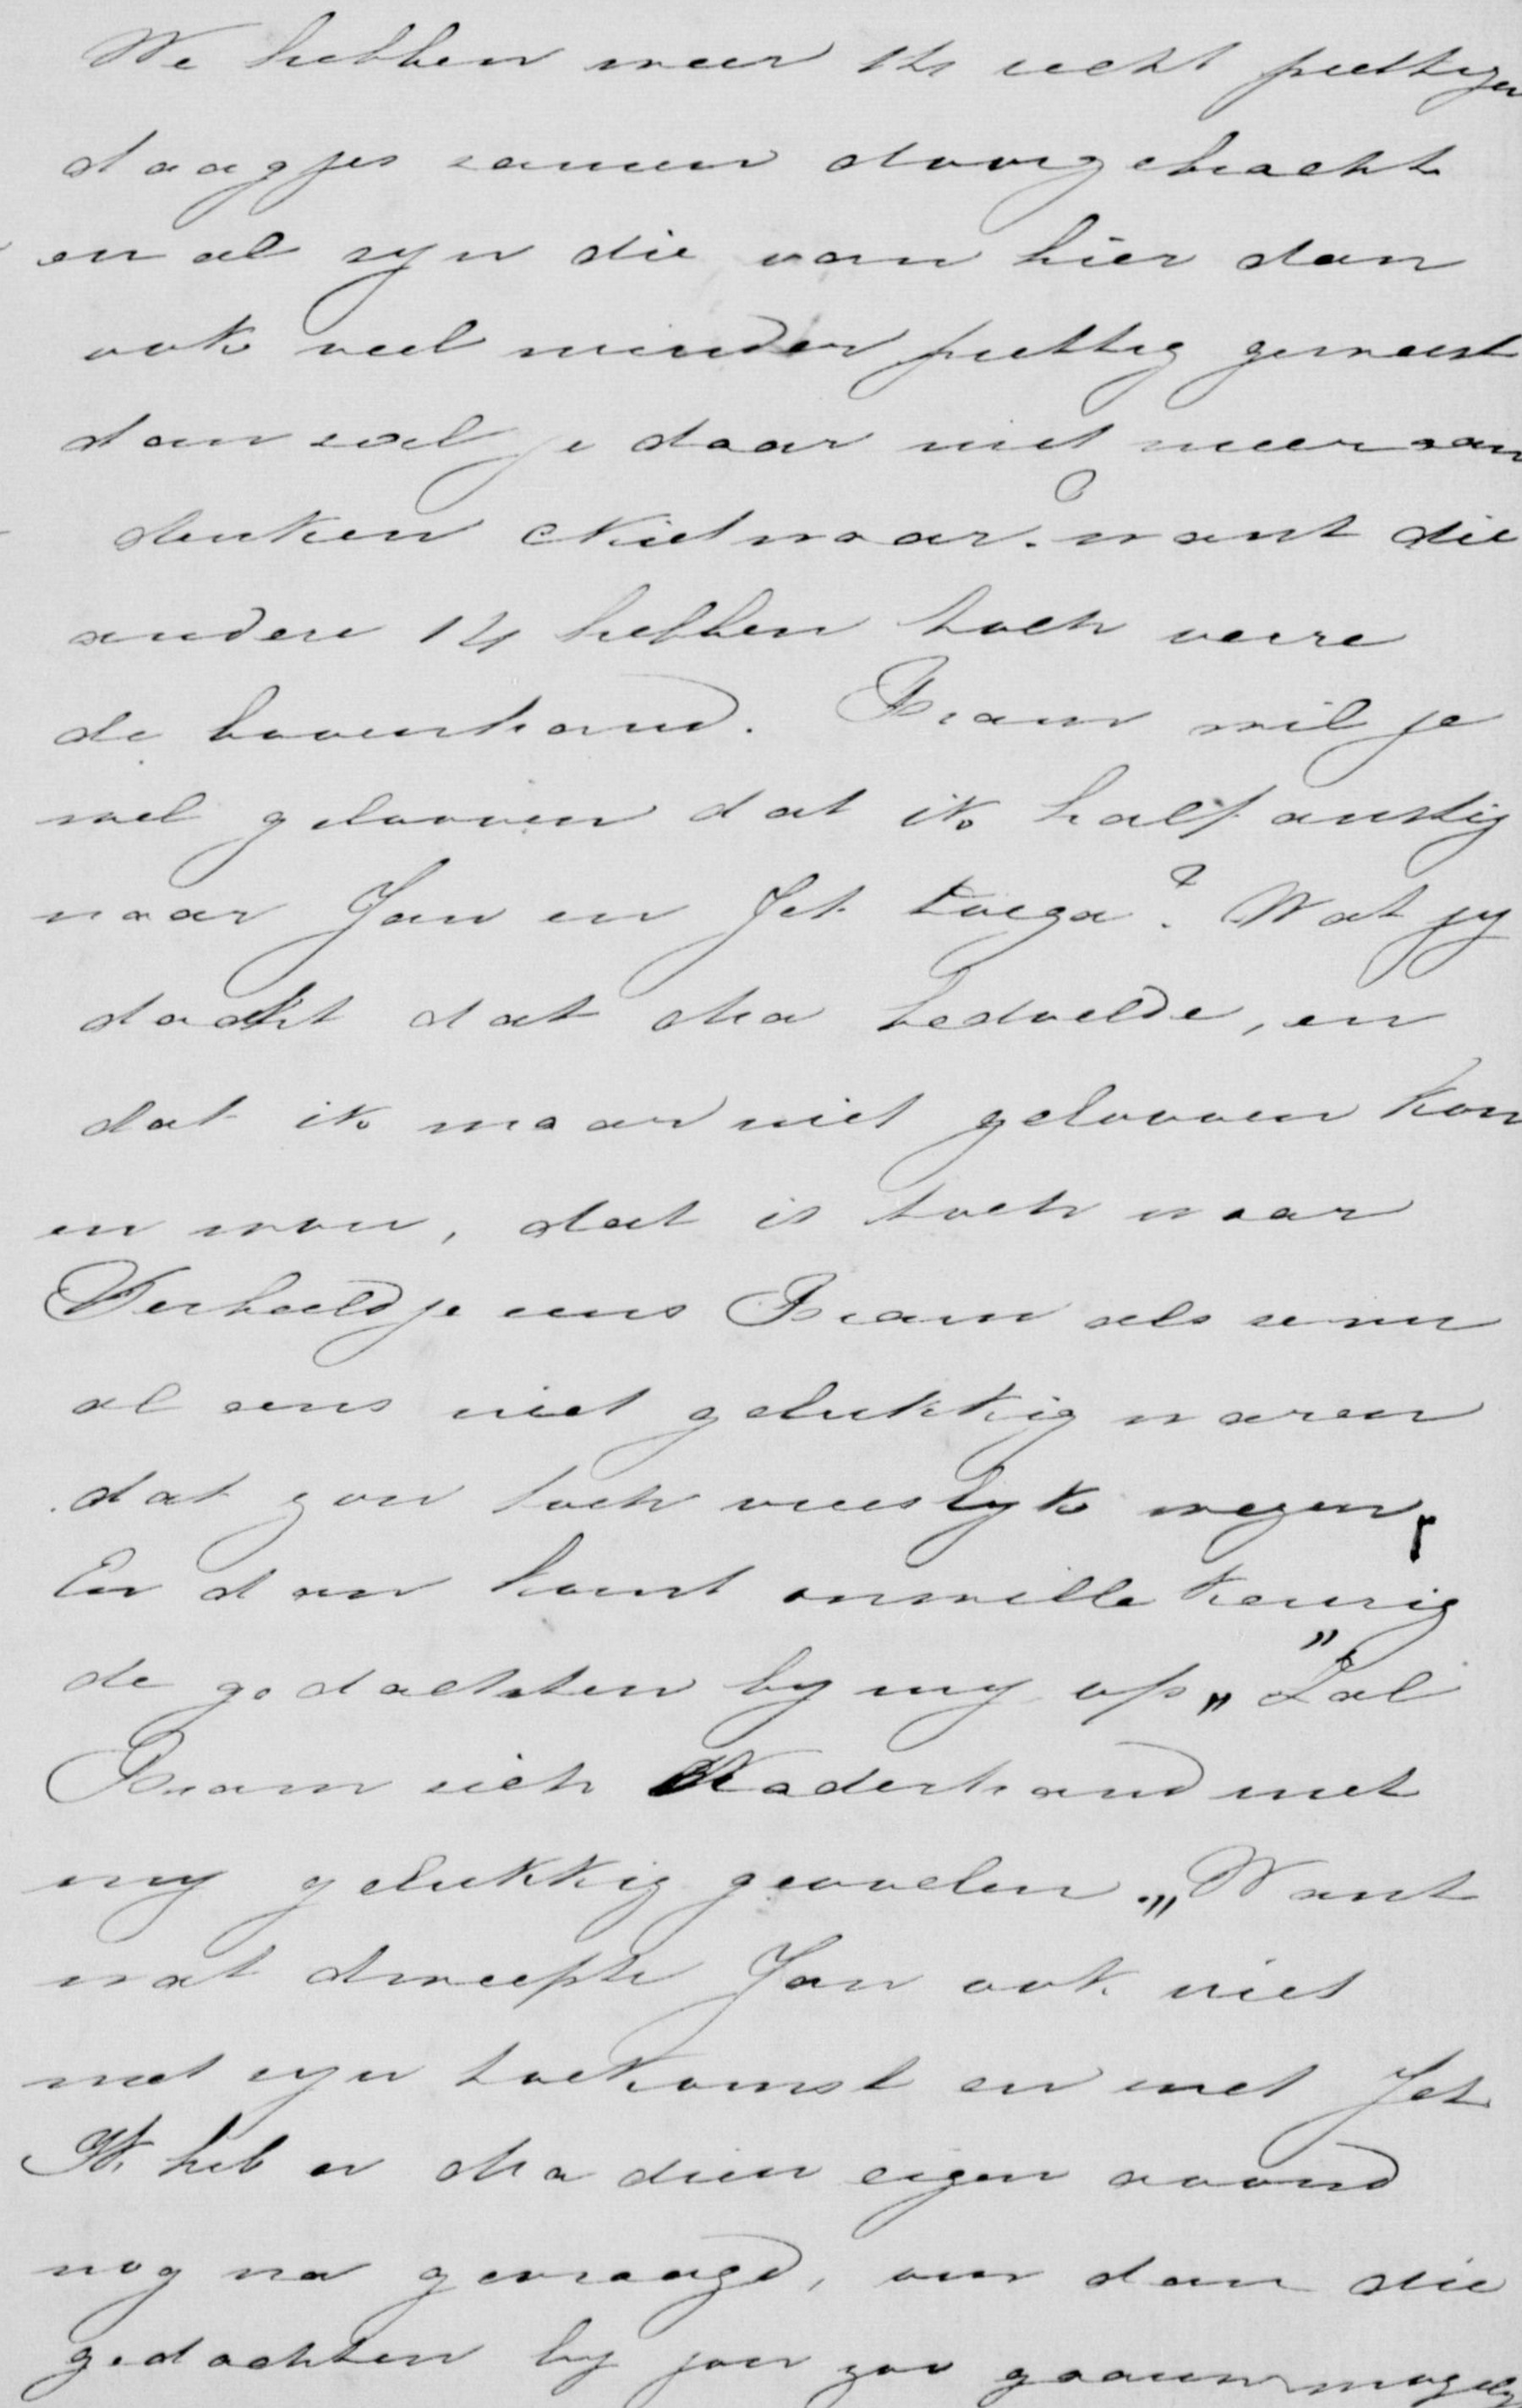 We hebben weer 14 echt prettige
daagjes samen doorgebracht
en al zyn die van hier dan
ook veel minder prettig geweest
dan zal je daar niet meer aan
denken Niet waar? want die
andere 14 hebben toch verre
de bovenhand. Bram wil je
wel gelooven dat ik half anstig
naar Jan en Jet toega? Wat jy
dacht dat Ma bedoelde, en
dat ik maar niet gelooven kon
en wou, dat is toch waar
Verbeeld je eens Bram als ze nu
al eens niet gelukkig waren
dat zou toch vreeslyk wezen,
En dan komt onwillekeurig
de gedachten by my op „Zal
Bram zich Naderhand met
my gelukkig gevoelen.„ Want
wat dweepte Jan ook niet
met zyn toekomst en met Jet
Ik heb er Ma dien eigen avond
nog na gevraagd, om dan die
gedachten by jou zoo gaauw mogely